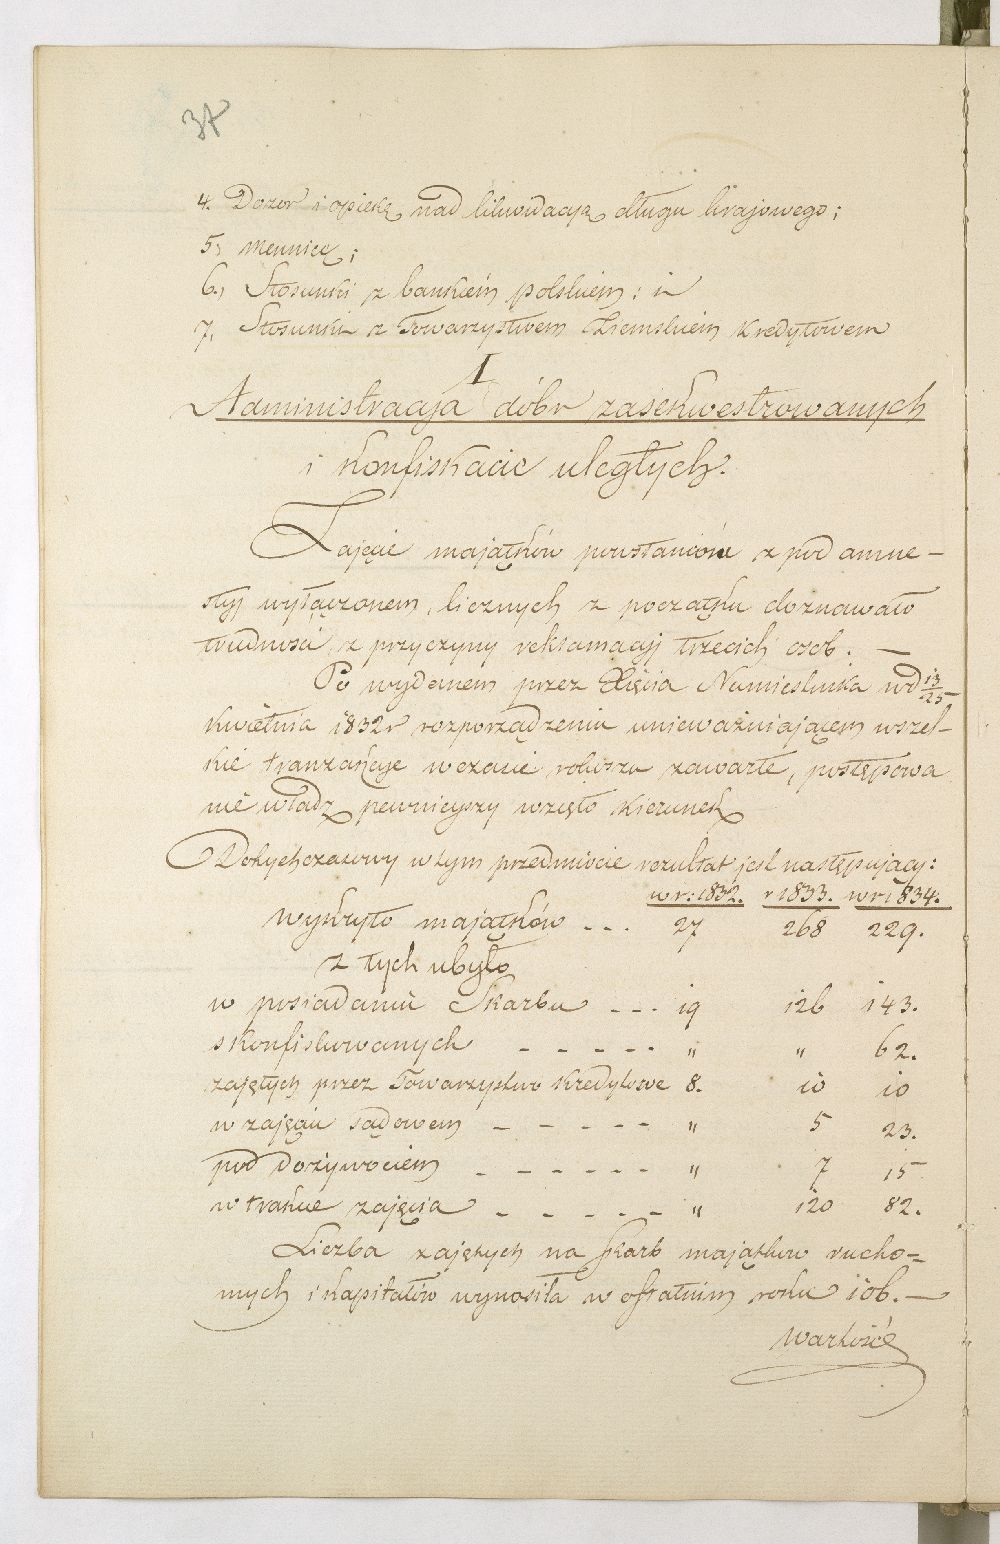 37
4. Dozór i opiekę nad likwidacyą długu krajowego;
5, Mennicę;
6., Stosunki z bankiem polskiem: i
7, Stosunki z Towarzystwem Ziemskiem Kredytowem
I
Administracja dóbr zasekwestrowanych
i konfiskacie uległych.
Zajęcie majątków powstańców z pod amne-
styj wyłączonem, licznych z początku doznawało
trudności, z przyczyny reklamacyj trzecich osob. —
Po wydanem przez Xięcia Namiestnika wd 13/25
kwietnia 1832r rozporządzeniu unieważniającem wszel-
kie tranzakcje wczasie rokoszu zawarte, postępowa
nie władz pewnieyszy wzięło kierunek
Dotychczasowy wtym przedmiocie rezultat jest następujący:
w r: 1832. r 1833. w r: 1834.
Wykryto majątków ... 27 268 229.
z tych ubyło
w posiadaniu Skarbu --- 19 126 143.
skonfiskowanych - - - - - " " 62.
zajętych przez Towarzystwo Kredytowe 8. 10 10
w zajęciu sądowem - - - - - " 5 23.
pod dożywociem - - - - - - " 7 15
w trakcie zajęcia - - - - - " 120 82.
Liczba zajętych na skarb majątków rucho=
mych i kapitałów wynosiła w ostatnim roku 106. —
Wartość